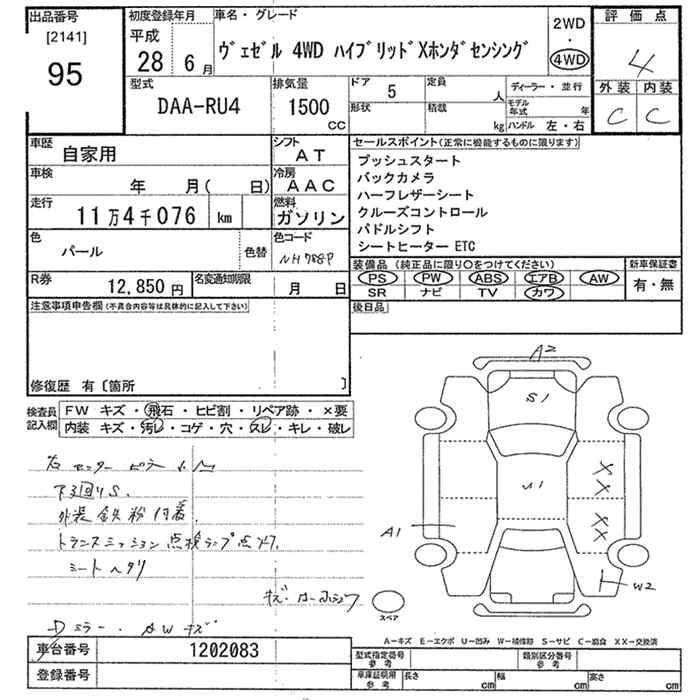 出品番号
[2141]
95
初度登録年月
平成
28年 6月
車名・グレード
ヴェゼル 4WD ハイブリッドXホンダセンシング
2WD
・
4WD
評価点
4
外装 内装
C C
型式
DAA-RU4
排気量
1500
CC
ドア 5
定員 人
形状
積載 kg
ディーラー・並行
モデル年式 年
ハンドル 左・右
車歴
自家用
シフト
AT
車検
年 月( 日)
冷房
AAC
走行
11万4千076 km
燃料
ガソリン
色
パール
色替
色コード
NH788P
R券
12,850円
名変通知期限
月 日
セールスポイント(正常に機能するものに限ります)
プッシュスタート
バックカメラ
ハーフレザーシート
クルーズコントロール
パドルシフト
シートヒーター ETC
装備品 (純正品に限り○をつけてください)
PS PW ABS エアB AW
SR ナビ TV カワ
新車保証書
有・無
後日品
注意事項申告欄(不具合内容等は具体的に記入して下さい)
修復歴 有〔箇所 〕
検査員記入欄
FW キズ・飛石・ヒビ割・リペア跡・×要
内装 キズ・汚レ・コゲ・穴・スレ・キレ・破レ
右センターピラー
下回りS.
外装鉄粉付着.
トランスミッション点検ランプ点灯.
シートヘタリ
キズ.
Dミラー. AWキズ
A2
S1
U1
A1
XX
XX
W2
スペア
A-キズ E-エクボ U-凹み W-補修跡 S-サビ C-腐食 XX-交換済
車台番号
1202083
登録番号
型式指定番号
参考
類別区分番号
参考
車庫証明用
参考
長さ cm
幅 cm
高さ cm